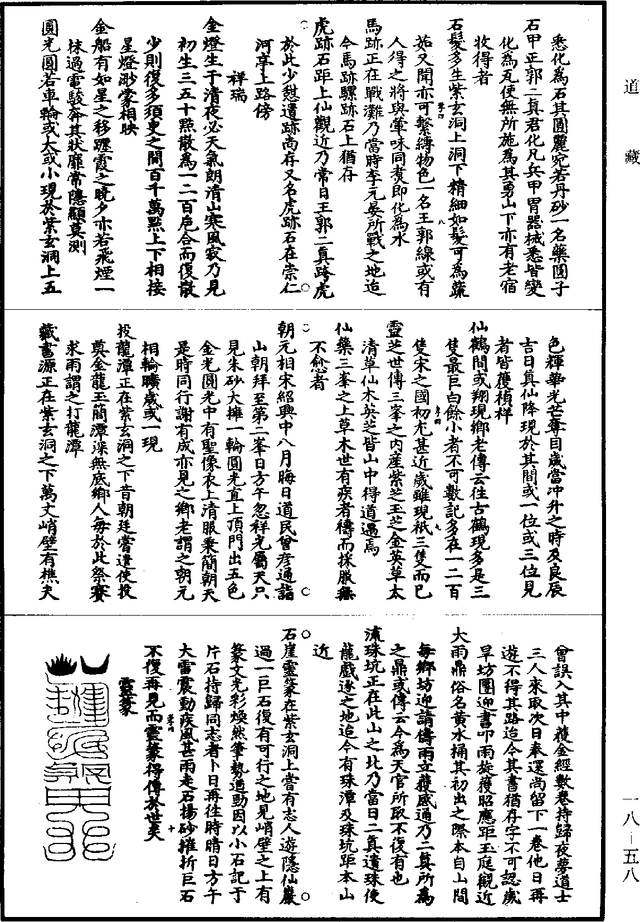 道藏
悉化為石其圓麗宛若丹砂一名藥團子
石甲正郭二真君化凡兵甲冑器械悉皆變
化為瓦使無所施為其勇山下亦有老宿
收得者
石髮多生紫玄洞上洞下精細如髮可為蔬
茹又聞亦可繫縛物色一名王郭線或有
人得之將與葷味同煑即化為水
馬跡正在戰灘乃當時李元晏所戰之地迨
今馬跡騾跡石上猶存
虎跡石距上仙觀近乃常日王郭二真跨虎
於此少憇遺跡尚存又名虎跡石在崇仁
河亭上路傍
祥瑞
金燈生于清夜必天氣朗清山寒風寂乃見
初生三五十點散為一二百危合而復散
少則復多須臾之間百千萬點上下相接
星燈渺濛相映
金船有如星之移躔霞之晚夕亦若飛煙一
抹過雷駿奔其狀靡常隱顯莫測
圓光圓若車輪或大或小現於紫玄洞上五
色輝華光芒奪目歲當冲升之時及良辰
吉日真仙降現於其間或一位或三位見
者皆獲禎祥
仙鶴間或翔現鄉老傳云往古鶴現多是三
隻最巨白餘小者不可數記多在一二百
隻宋之國初尤甚近歲雖現祇三隻而已
靈芝世傳三峯之内產紫芝玉芝金英草太
清草仙木英芝皆山中得道遇焉
仙藥三峯之上草木世有疾者禱而採服無
不愈者
朝元相宋紹興中八月晦日道民曾彦通詣
山朝拜至第二峯日方午忽祥光屬天只
見朱砂大擁一輪圓光直上頂門出五色
金光圓光中有聖像衣上清服秉簡朝天
是時同行謝有成亦見之鄉老謂之朝元
相輪曠歲或一現
投龍潭正在紫玄洞之下昔朝廷嘗遣使投
奠金龍玉簡潭深無底鄉人每於此祭賽
求雨謂之打龍潭
藏書源正在紫玄洞之下萬丈峭壁有樵夫
曾誤入其中獲金經數卷持歸夜夢道士
三人來取次日奉還尚留下一卷他日再
遊不得其路迨今其書猶存字不可認歲
旱坊團迎書叩雨旋獲昭應距玉庭觀近
大雨鼎俗名黄水桶其初出之際本自山間
每鄉坊迎請禱雨立獲感通乃二真所為
之鼎或傳云今為天官所取不復有也
流珠坑正在此山之北乃當日二真遺珠使
龍戲逐之地迨今有珠潭及珠坑距本山
近
石崖靈篆在紫玄洞上嘗有志人遊隱仙巖
過一巨石復有可行之地見峭壁之上有
篆字光彩煥然筆勢遒動因以小石記于
片石持歸同志者卜日再往時晴日方午
大雷震動疾風甚雨走石揚砂摧折巨石
不復再見而靈篆得傳於世矣
靈篆
一八—五八